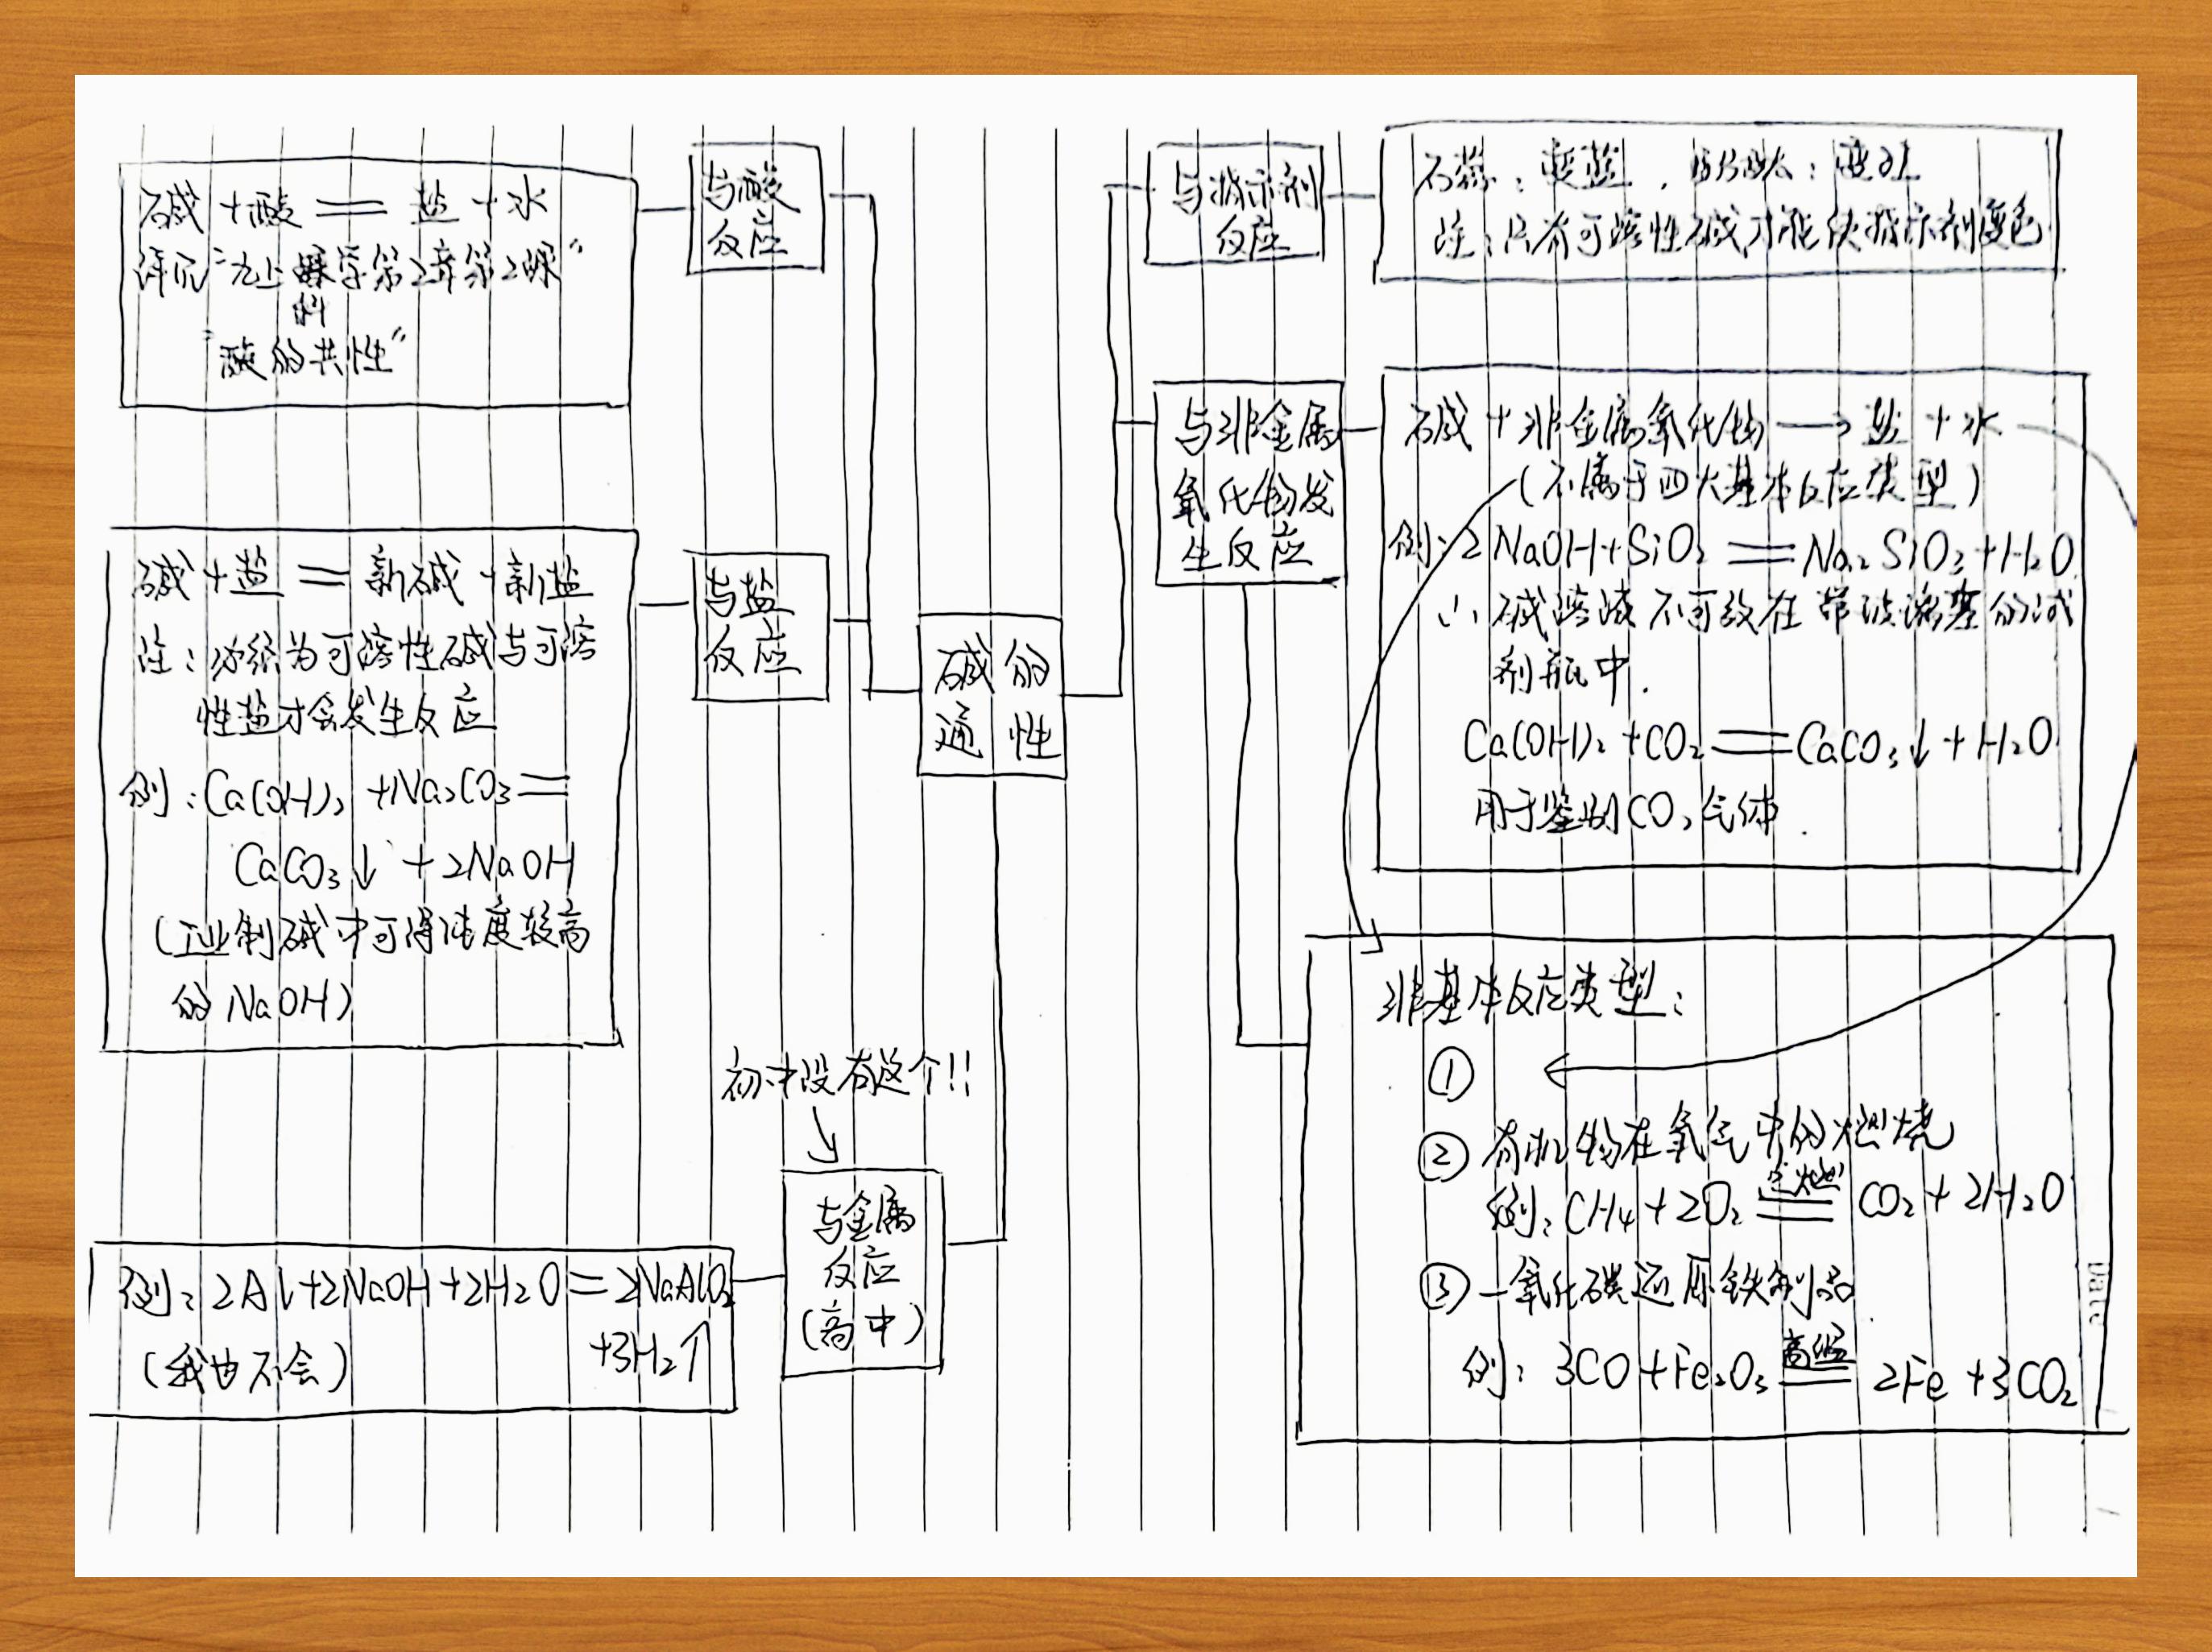 碱 + 酸 == 盐 + 水
详见"九上 科学第2章第2课"
"酸的共性"
与酸
反应
碱 + 盐 == 新碱 + 新盐
注：必须为可溶性碱与可溶
性盐才会发生反应
例：Ca(OH)₂ + Na₂CO₃ ==
CaCO₃↓ + 2NaOH
(工业制碱中可得纯度较高
的 NaOH)
与盐
反应
碱 的
通 性
初中没有这个!!
与金属
反应
(高中)
例：2Al+2NaOH+2H₂O = 2NaAlO₂
+3H₂↑
(我也不会)
与指示剂
反应
石蕊：变蓝，酚酞：变红
注：只有可溶性碱才能使指示剂变色
与非金属
氧化物发
生反应
碱 + 非金属氧化物 → 盐 + 水
(不属于四大基本反应类型)
例：2NaOH+SiO₂ == Na₂SiO₃+H₂O
∴ 碱溶液不可放在带玻璃塞的试
剂瓶中.
Ca(OH)₂ + CO₂ == CaCO₃↓ + H₂O
用于鉴别CO₂气体.
非基本反应类型：
①
② 有机物在氧气中的燃烧
点燃
例：CH₄ + 2O₂ == CO₂ + 2H₂O
③ 一氧化碳还原铁制品
高温
例：3CO + Fe₂O₃ == 2Fe + 3CO₂
Date